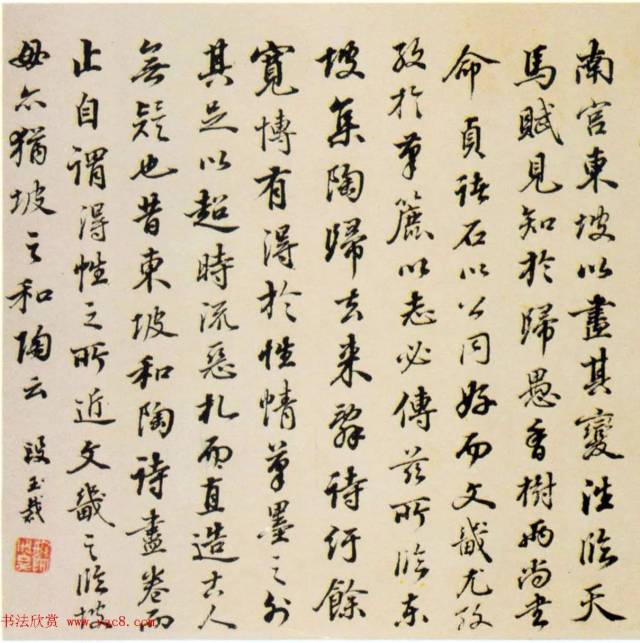 南宮東坡以盡其變臨天
馬賦見知於歸愚香樹兩尚書
命貞諸石以公同好而文畿尤孜
孜於筆以必傳茲所臨東
坡集陶歸去來辭詩紆餘
寬博有得於性情筆墨之外
其足以超時流惡札而直造古人
無疑也昔東坡和陶詩盡卷而
止自謂得性之所近文畿之臨坡
毋亦猶坡之和陶云
段玉裁
书法欣赏 www.yac8.com